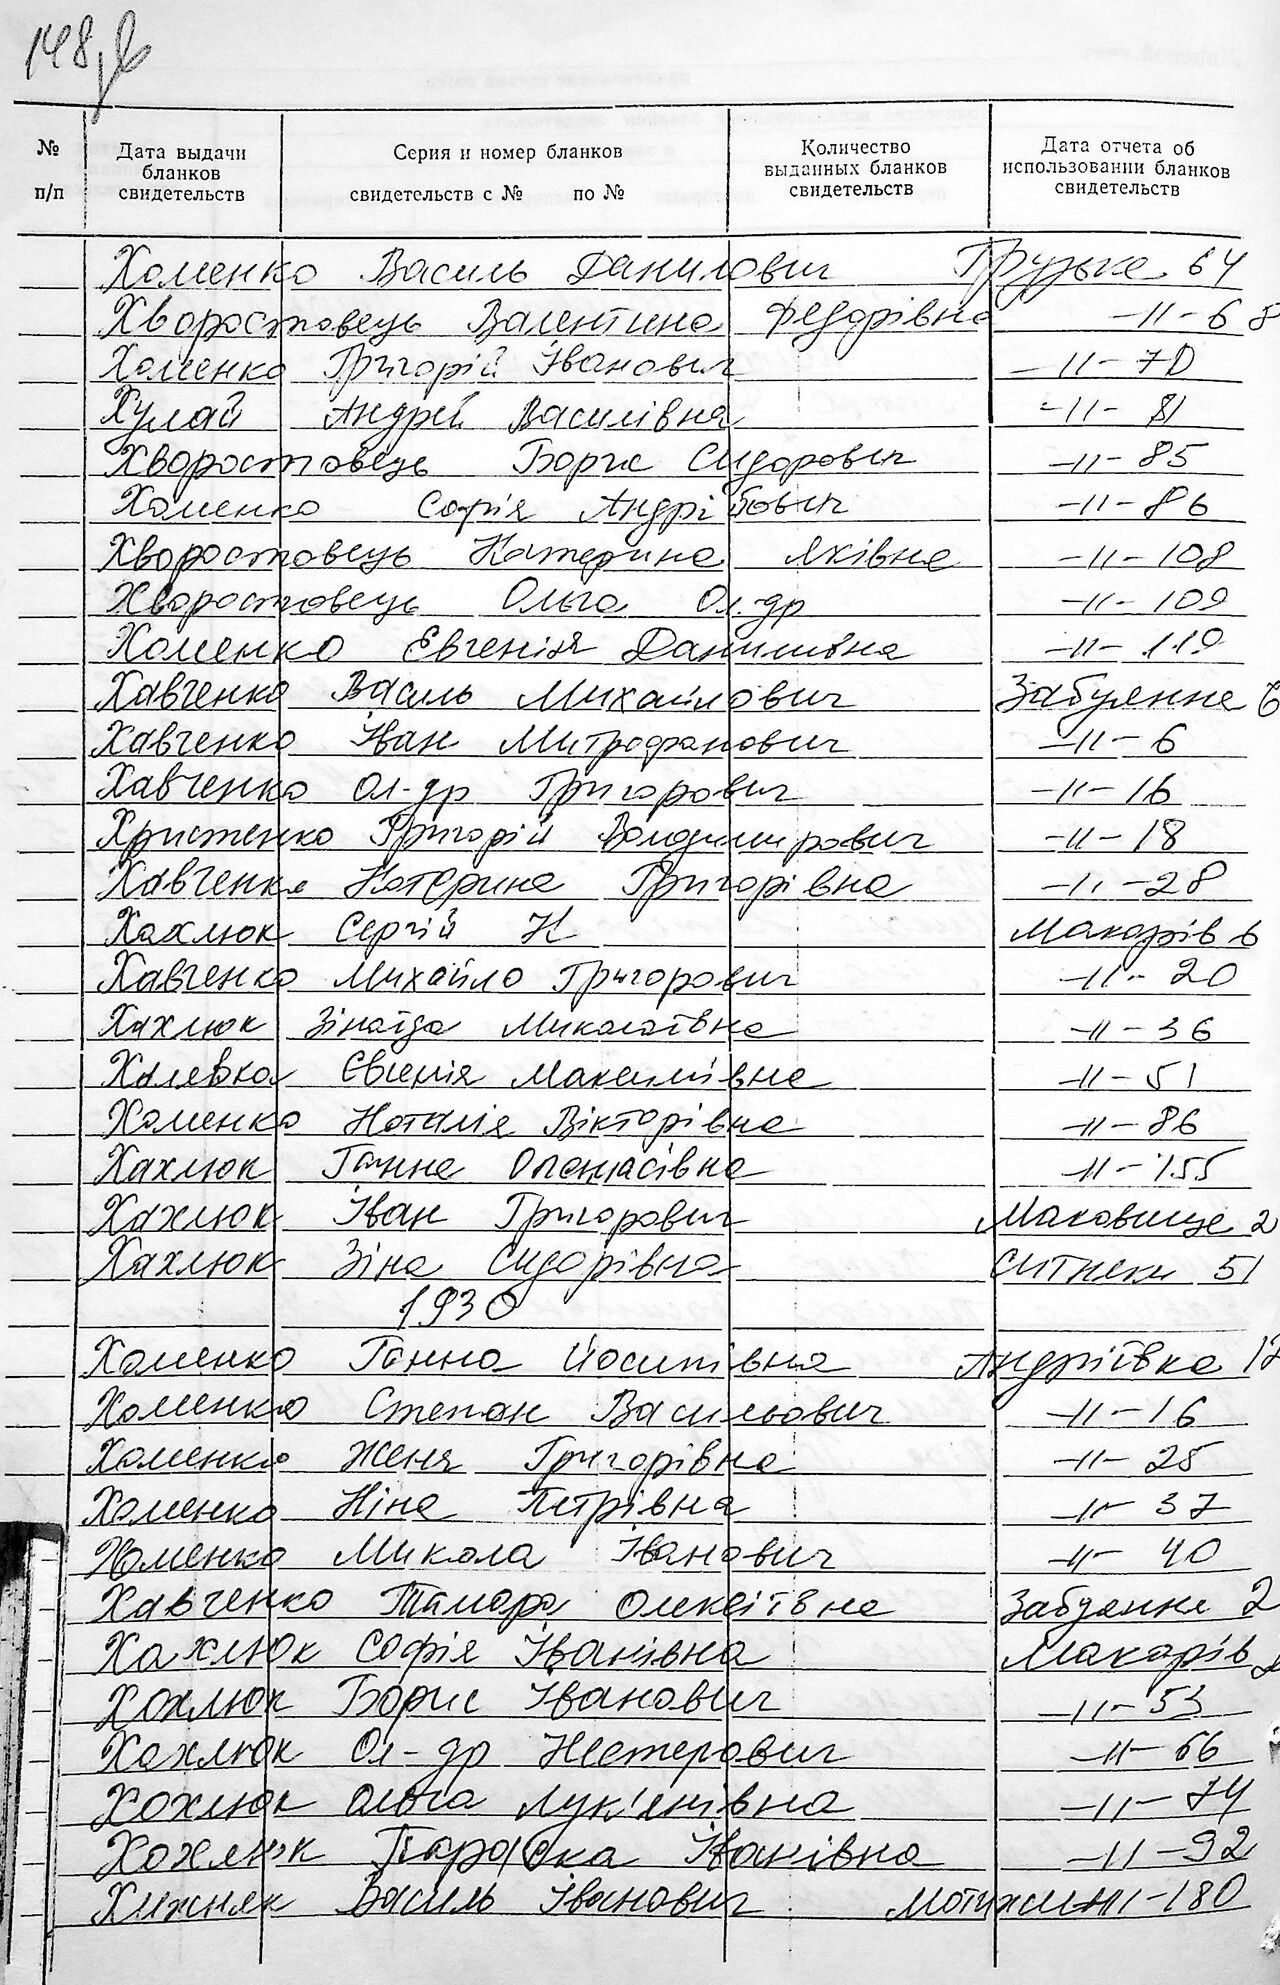 148
№ п/п
Дата выдачи бланков свидетельств
Серия и номер бланков свидетельств с № по №
Количество выданных бланков свидетельств
Дата отчета об использовании бланков свидетельств
Хоменко Василь Данилович Грузьке 64
Хворостовець Валентина Федорівна -11- 68
Хоменко Григорій Іванович -11- 70
Хулай Андрій Василівна -11- 81
Хворостовець Борис Сидорович -11- 85
Хоменко Софія Андріївич -11- 86
Хворостовець Катерина Яківна -11- 108
Хворостовець Ольга Ол-др -11- 109
Хоменко Євгенія Данилівна -11- 119
Хавченко Василь Михайлович Забуяння 6
Хавченко Іван Митрофанович -11- 6
Хавченко Ол-др Григорович -11- 16
Христенко Григорій Володимирович -11- 18
Хавченко Катерина Григорівна -11- 28
Хахлюк Сергій К Макарів 6
Хавченко Михайло Григорович -11- 20
Хахлюк Зінаїда Миколаївна -11- 36
Халевка Євгенія Максимівна -11- 51
Хоменко Наталія Вікторівна -11- 86
Хахлюк Ганна Опанасівна -11- 155
Хахлюк Іван Григорович Маковище 2
Хахлюк Зіна Сидорівна Ситняки 51
1930
Хоменко Ганна Йосипівна Андріївка 12
Хоменко Степан Васильович -11- 16
Хоменко Женя Григорівна -11- 25
Хоменко Ніна Петрівна -11- 37
Хоменко Микола Іванович -11- 40
Хавченко Тамара Олексіївна Забуяння 2
Хахлюк Софія Іванівна Макарів
Хохлюк Борис Іванович -11- 53
Хахлюк Ол-др Нестерович -11- 66
Хохлюк Ольга Лук'янівна -11- 74
Хохлюк Параска Іванівна -11- 92
Хижняк Василь Іванович Мотижин -11- 180